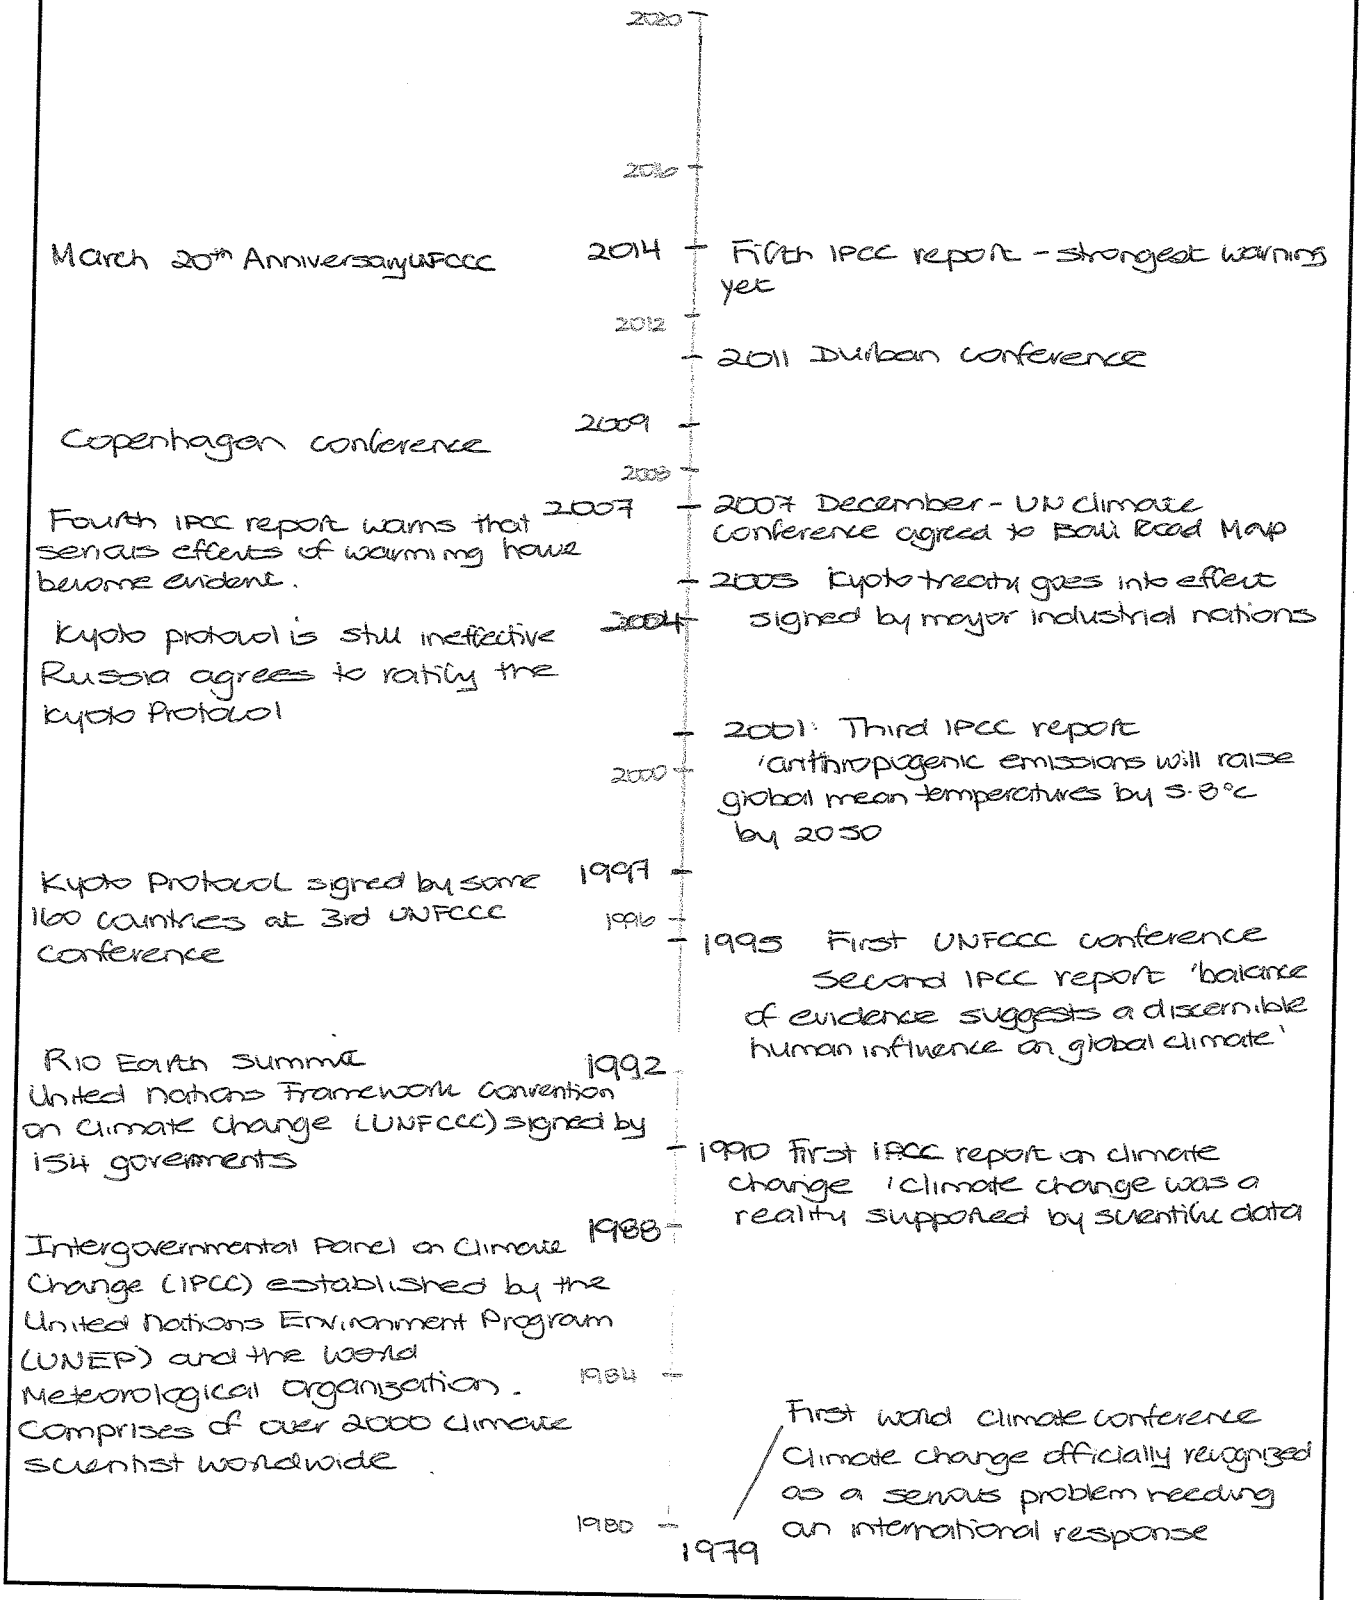 2020
2016
March 20th Anniversary UNFCCC
2014
Fifth IPCC report - strongest warning
yet
2012
2011 Durban conference
2009
Copenhagen conference
2008
2007
Fourth IPCC report warns that
serious effects of warming have
become evident.
2007 December - UN climate
conference agreed to Bali Road Map
2005 Kyoto treaty goes into effect
signed by mayor industrial nations
2004
Kyoto protocol is still ineffective
Russia agrees to ratify the
Kyoto Protocol
2001: Third IPCC report
'anthropogenic emissions will raise
global mean temperatures by 5.8°C
by 2050
2000
1997
Kyoto Protocol signed by some
160 countries at 3rd UNFCCC
conference
1996
1995 First UNFCCC conference
Second IPCC report 'balance
of evidence suggests a discernible
human influence on global climate'
Rio Earth Summit
1992
United Nations Framework Convention
on Climate Change (UNFCCC) signed by
154 governments
1990 First IPCC report on climate
change 'climate change was a
reality supported by scientific data
1988
Intergovernmental Panel on Climate
Change (IPCC) established by the
United Nations Environment Program
(UNEP) and the World
Meteorological Organization.
Comprises of over 2000 climate
scientist worldwide
1984
First world climate conference
Climate change officially recognized
as a serious problem needing
an international response
1980
1979